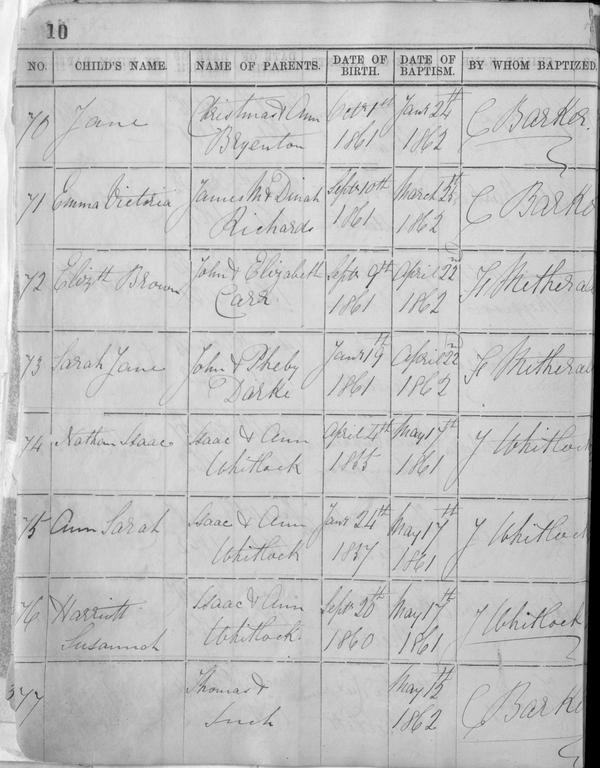 10
NO. CHILD'S NAME. NAME OF PARENTS. DATE OF BIRTH. DATE OF BAPTISM. BY WHOM BAPTIZED.
70 Jane Christmas & Ann Octr 1st Jany 24th C Barker.
Bryenton 1861 1862
71 Emma Victoria James M & Dinah Septr 10th March C Barke
Richards 1861 1862
72 Elizth Brown John & Elizabeth Septr 9th April 22nd
Carr 1861 1862
73 Sarah Jane John & Pheby Jany 19th April 22nd
Darke 1861 1862
74 Nathan Isaac Isaac & Ann April 4th May 17th J Whitlock
Whitlock 1855 1861
75 Ann Sarah Isaac & Ann Jany 24th May 17th J Whitlock
Whitlock 1857 1861
76 Harriett Isaac & Ann Septr 20th May 17th J Whitlock
Susannah Whitlock 1860 1861
77 Thomas & May C Barke
Such 1862